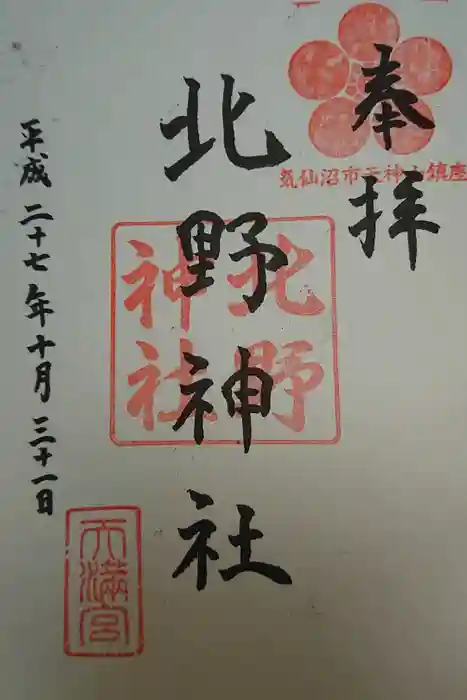 奉拝
気仙沼市天神山鎮座
北野神社
北野
神社
平成二十七年十月三十一日
天満宮